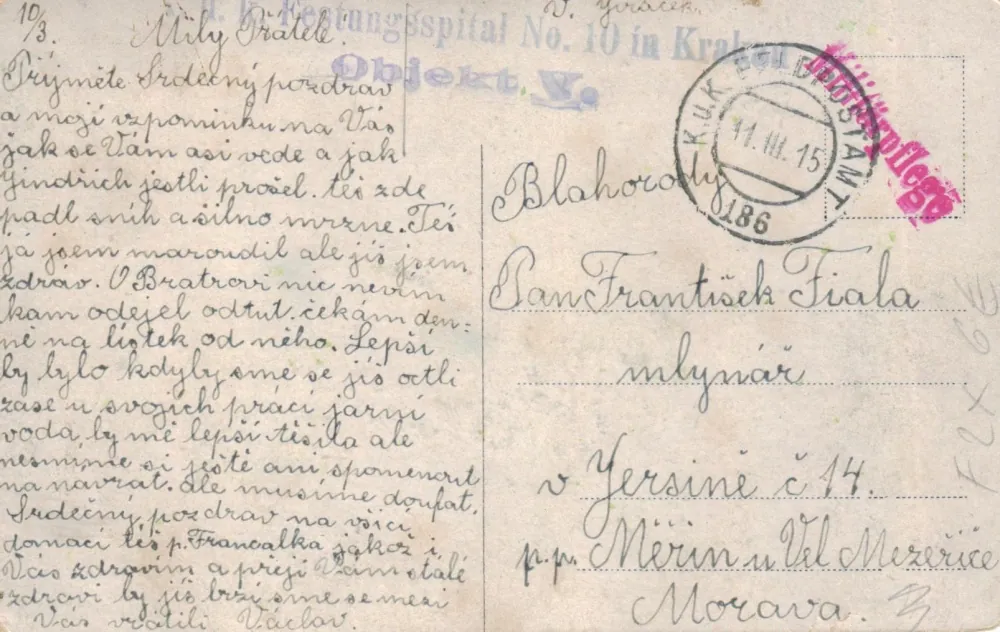 10/3.
Milý Přátelé.
Přijměte Srdečný pozdrav
a mojí vzpomínku na Vás
jak se Vám asi vede a jak
Jindřich jestli prošel. též zde
padl sníh a silno mrzne. Též
já jsem maroudil ale jiš jsem
zdráv. O Bratrovi nic nevím
kam odejel odtut. čekám den-
ně na lístek od něho. Lepší
by bylo kdyby sme se jiš octli
zase u svojich prácí jarní
voda by mě lepší těšila ale
nesmíme si ještě ani spomenout
na navrat. ale musíme doufat.
Srdečný pozdrav na všici
domací též p. Francalka jakož i
Vás zdravím a preji Vám stalé
zdraví by jiš brzi sme se mezi
Vás vrátili Václav.
V. Jiráček.
k. Festungsspital No. 10 in Krakau
Objekt V.
K.u.K. FELDPOSTAMT
11. III. 15
186
Militärpflege
Blahorodý
Pan František Fiala
mlynář
v Jersině č 14.
p.p. Měřin u Vel Mezeřice
Morava.
F2X 6E